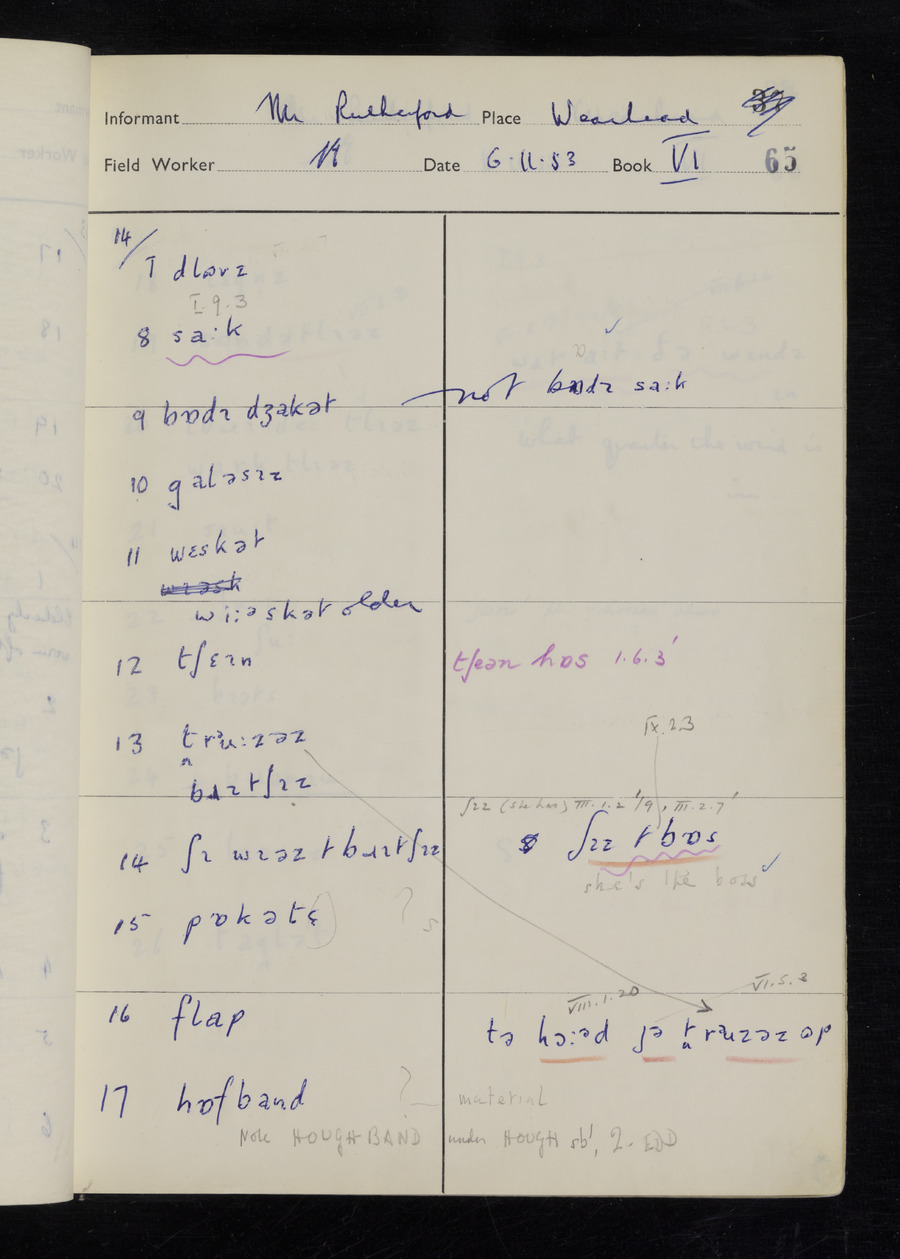 Informant Mr Rutherford Place Wearhead
Field Worker Date 6.11.53 Book VI 65
14/
7 dlɒvz
I.9.3
8 sa:k
9 bɒdɪ dʒakət not bɒdɪ sa:k ✓
10 galəsɪz
11 wɛskət
wi:əskət older
12 tʃɛɪn tʃɛən hɒs 1.6.3'
13 trʉ:zəz
IX.2.3
ʃɪz (she has) III.1.2'/9, III.2.7'
14 ʃɪ wɪəz t bɹɪtʃɪz ʃɪz t bɒs
she's the boss ✓
15 pɒkətɛ) ? s
VIII.1.20 VI.5.3
16 flap tə hɔ:əd jə trʉzəz ɒp
17 hɒfband ? material
Note HOUGHBAND under HOUGH sb', 2. EDD